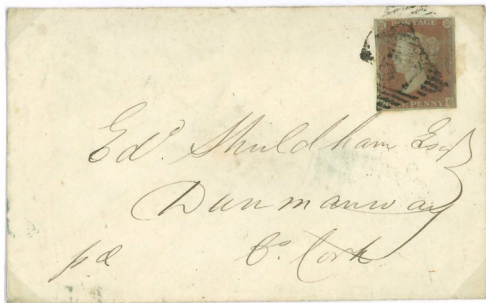 POSTAGE
PENNY
Edd. Shuldham Esqr
Dunmanway
Co. Cork
pd